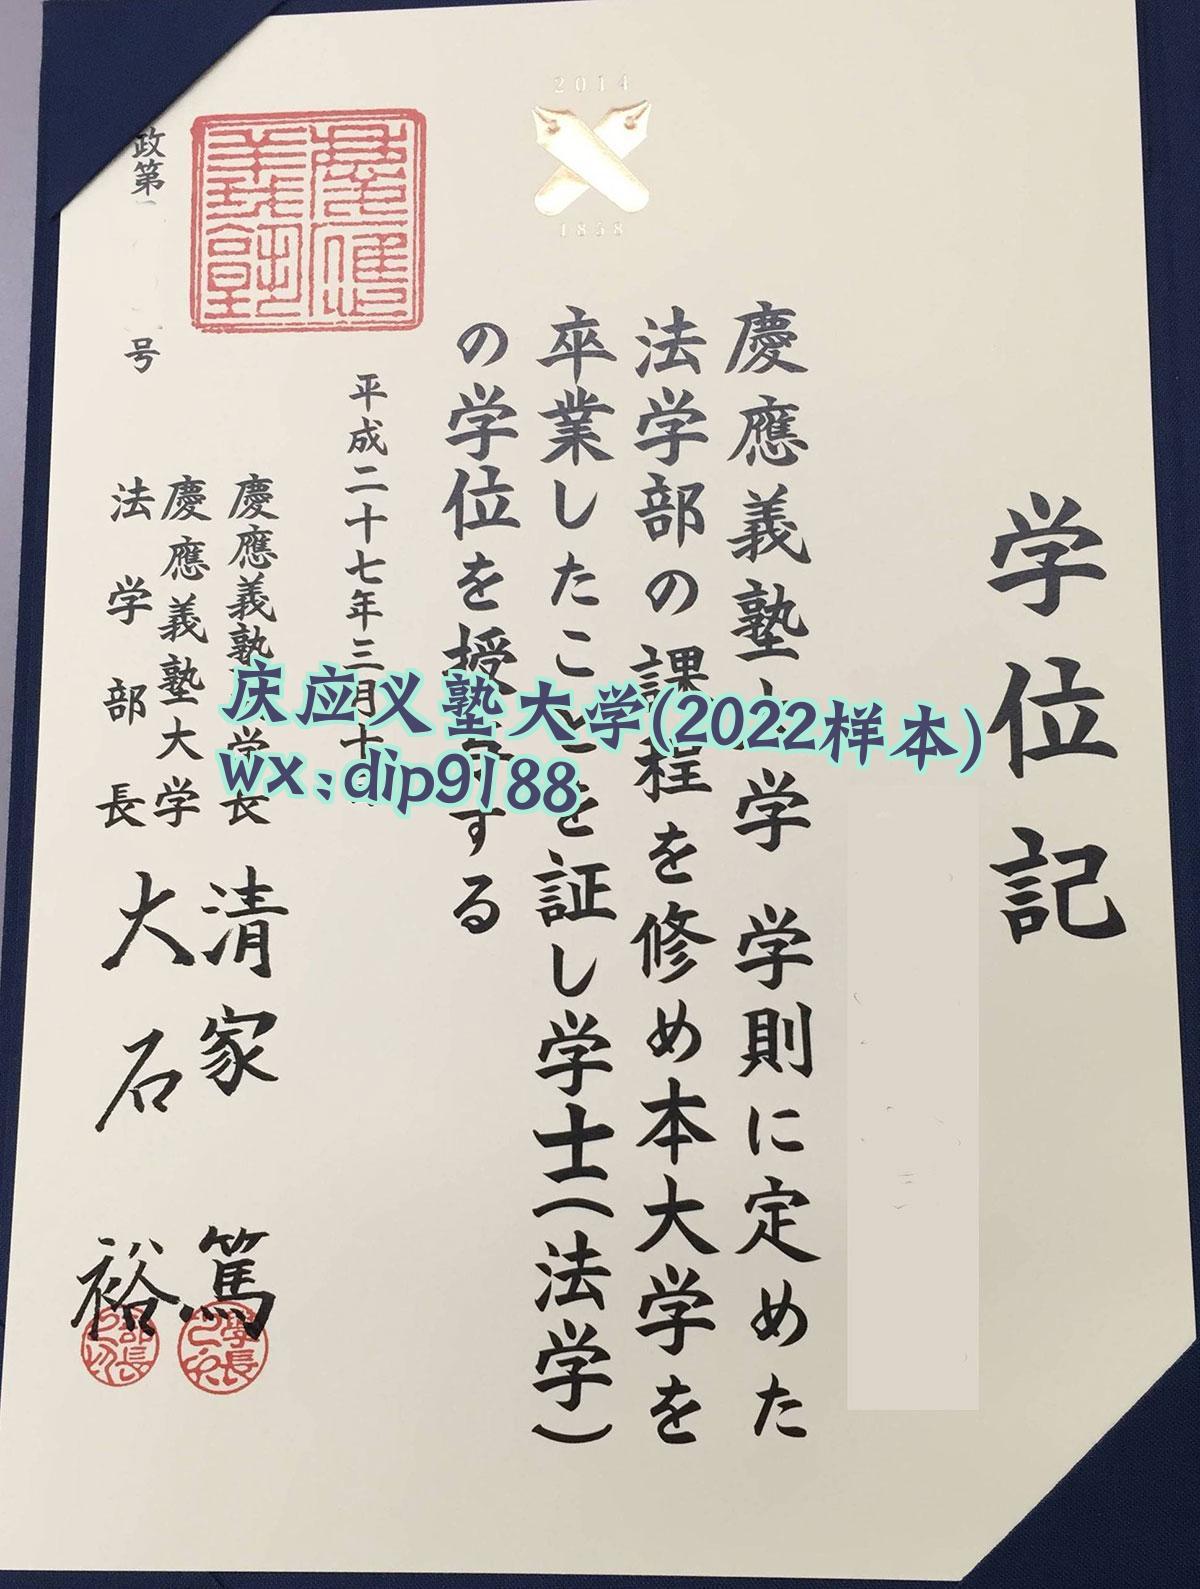 学位記
慶應義塾大学 学則に定めた
法学部の課程を修め本大学を
卒業したことを証し学士(法学)
の学位を授与する
平成二十七年三月十
慶應義塾 学長 清家 篤
慶應義塾大学
法学部長 大石 裕
政第
号
慶應義塾
2014
1858
学長
部長
庆应义塾大学(2022样本)
wx:dip9188